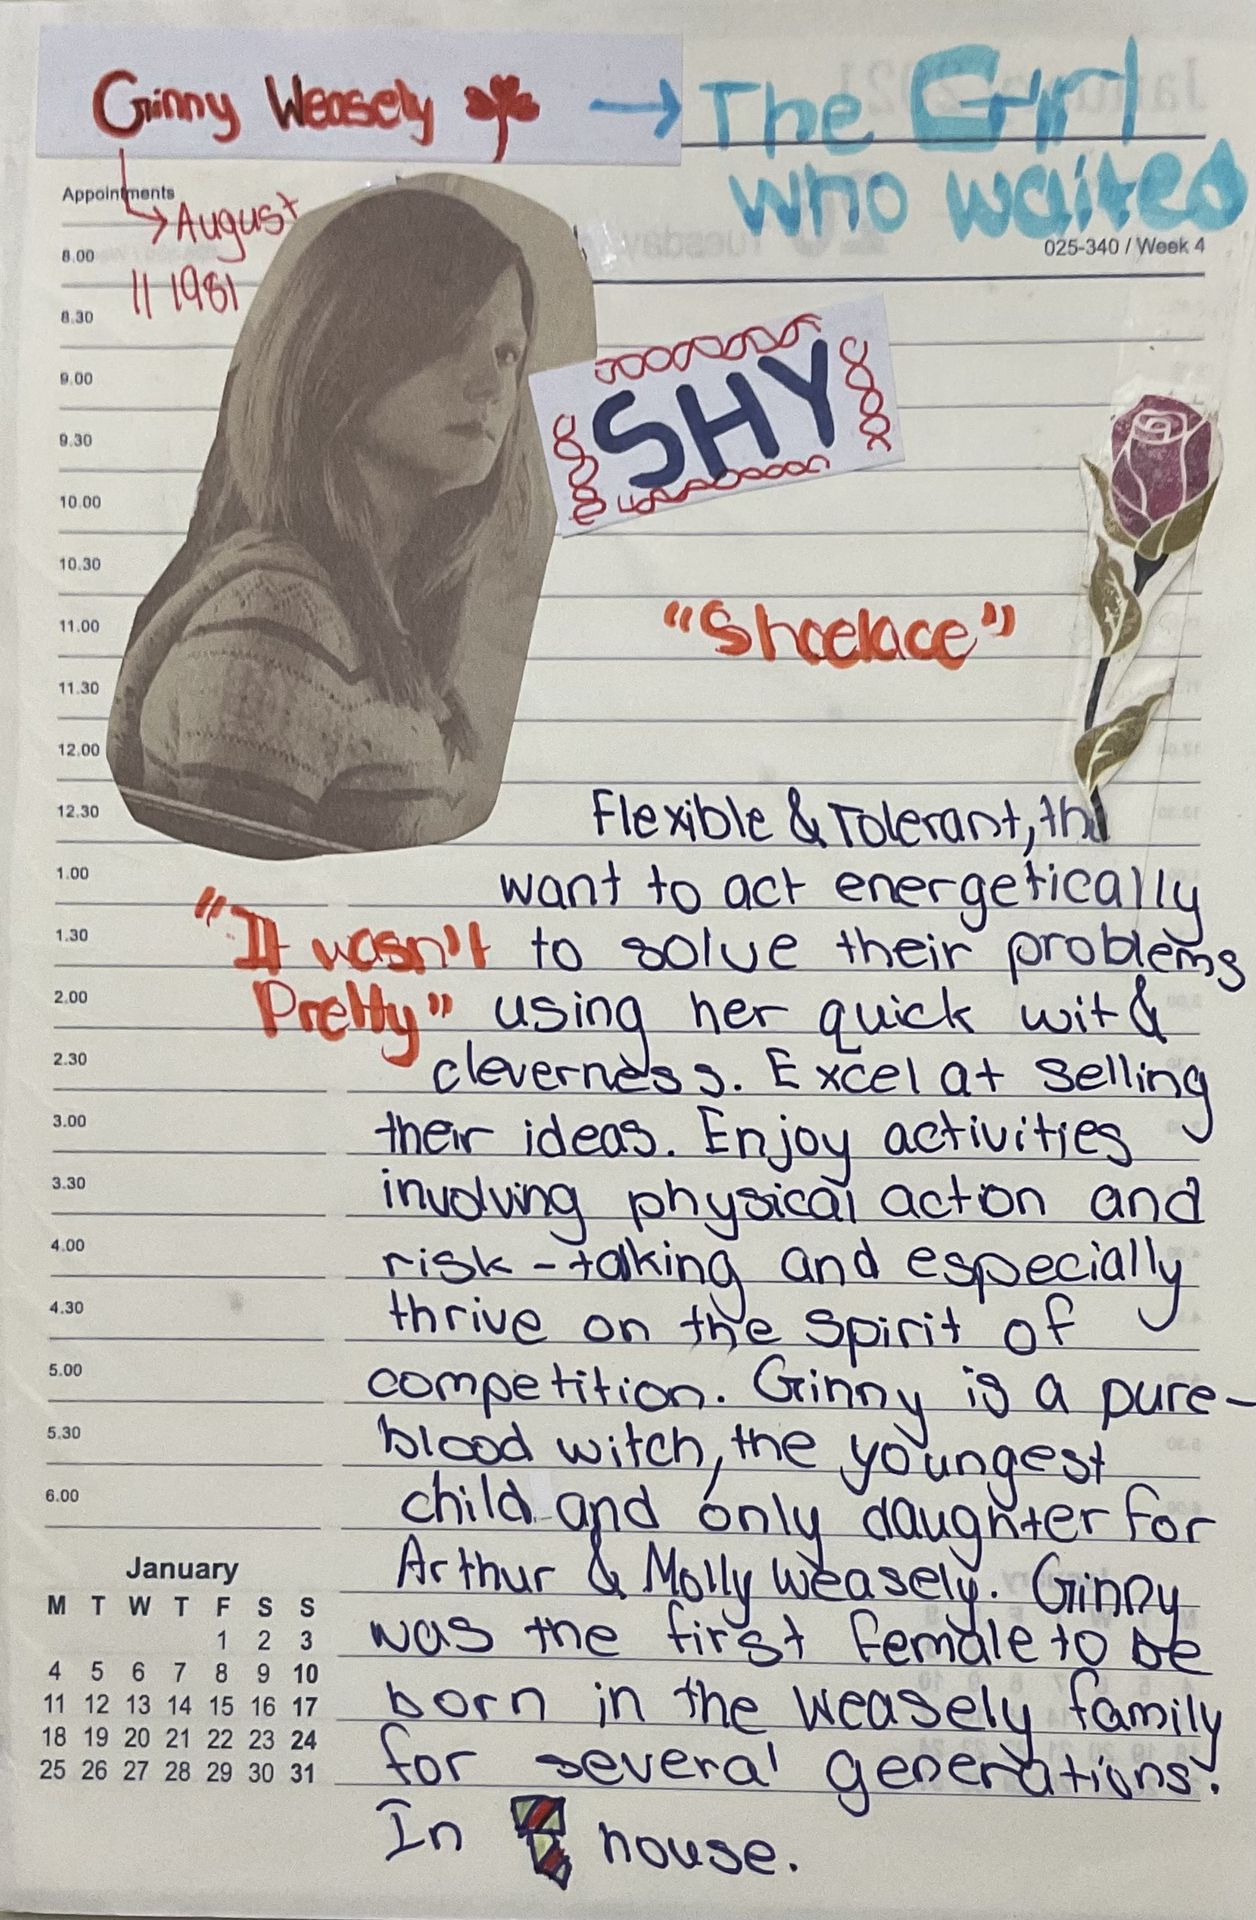 Ginny Weasely → The Girl
who waited
Appointments
→ August
11 1981
025-340 / Week 4
8.00
8.30
9.00
9.30
10.00
10.30
11.00
11.30
12.00
12.30
1.00
1.30
2.00
2.30
3.00
3.30
4.00
4.30
5.00
5.30
6.00
SHY
"Shoelace"
"It wasn't
Pretty"
Flexible & Tolerant,
want to act energetically
to solve their problems
using her quick wit &
cleverness. Excel at selling
their ideas. Enjoy activities
involving physical action and
risk-talking and especially
thrive on the spirit of
competition. Ginny is a pure-
blood witch, the youngest
child and only daughter for
Arthur & Molly Weasely. Ginny
was the first female to be
born in the Weasely family
for several generations.
In house.
January
M T W T F S S
1 2 3
4 5 6 7 8 9 10
11 12 13 14 15 16 17
18 19 20 21 22 23 24
25 26 27 28 29 30 31